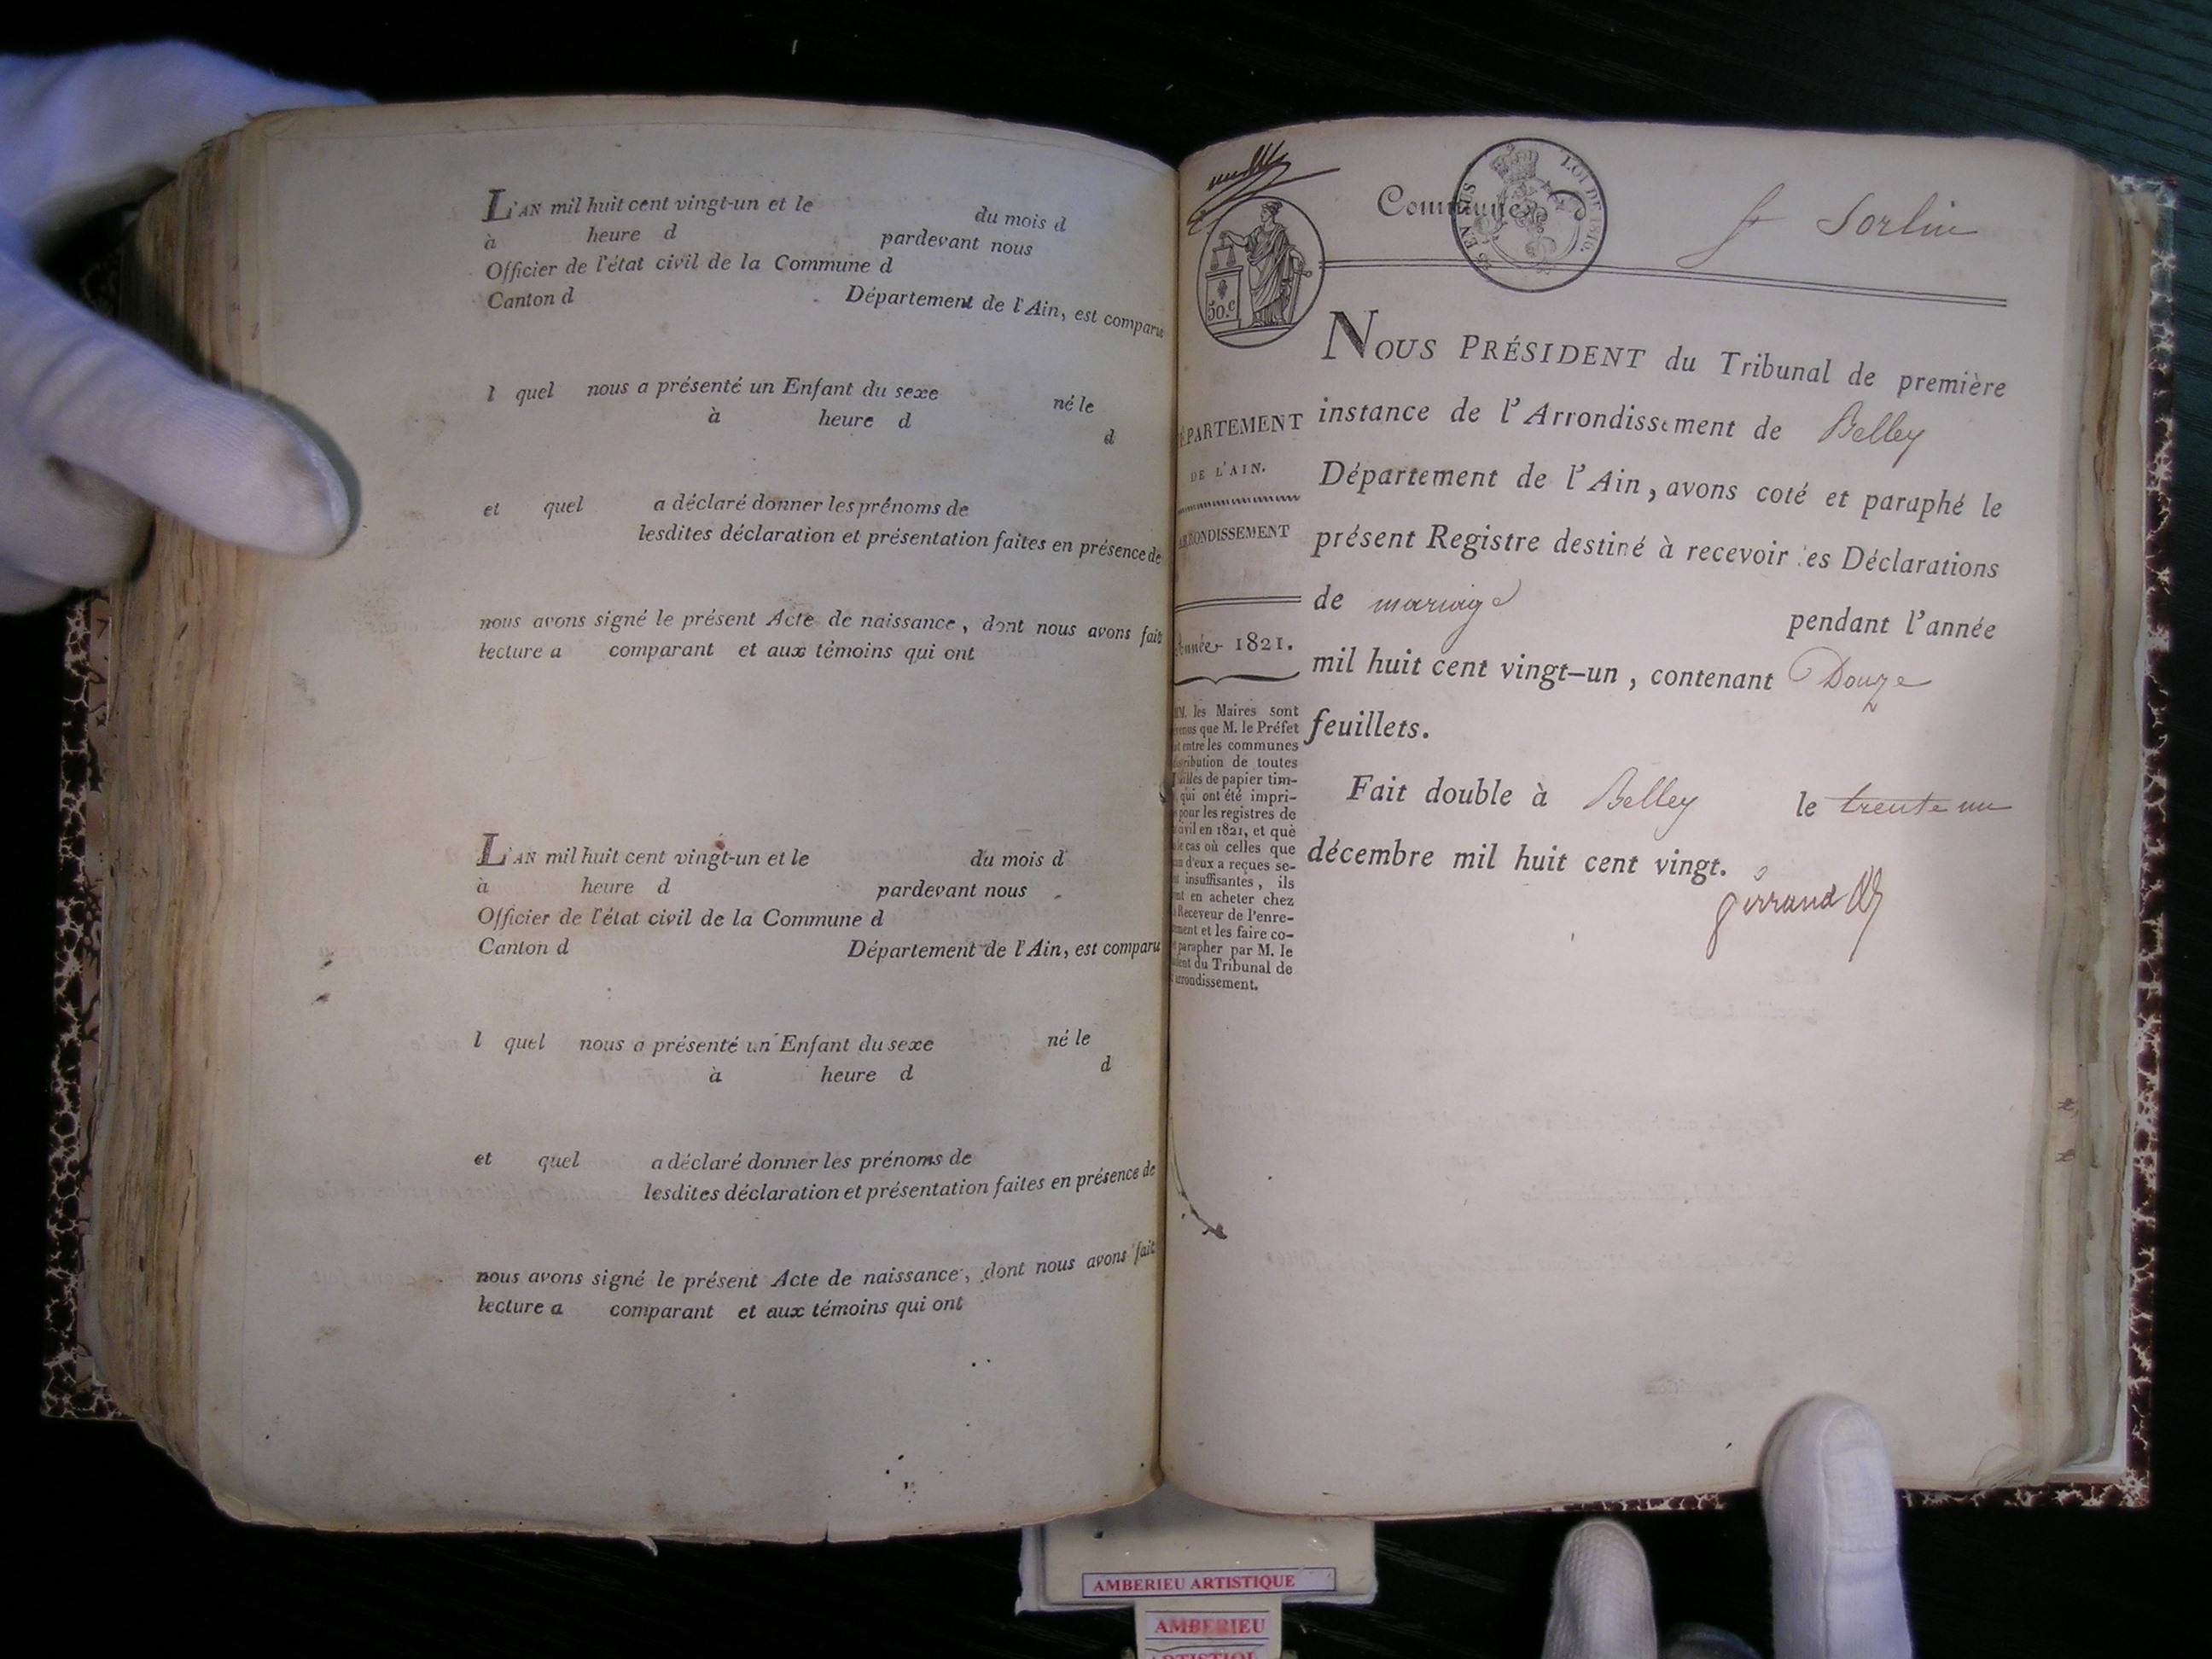 L'AN mil huit cent vingt-un et le du mois d
à heure d pardevant nous
Officier de l'état civil de la Commune d
Canton d Département de l'Ain, est comparu
l quel nous a présenté un Enfant du sexe né le
à heure d d
et quel a déclaré donner les prénoms de
lesdites déclaration et présentation faites en présence de
nous avons signé le présent Acte de naissance, dont nous avons fait
lecture a comparant et aux témoins qui ont
L'AN mil huit cent vingt-un et le du mois d
à heure d pardevant nous
Officier de l'état civil de la Commune d
Canton d Département de l'Ain, est comparu
l quel nous a présenté un Enfant du sexe né le
à heure d d
et quel a déclaré donner les prénoms de
lesdites déclaration et présentation faites en présence de
nous avons signé le présent Acte de naissance, dont nous avons fait
lecture a comparant et aux témoins qui ont
Commune St Sorlin
LOI DE 1816.
EN SUS
50.c
DÉPARTEMENT
DE L'AIN.
ARRONDISSEMENT
Année 1821.
MM. les Maires sont
que M. le Préfet
entre les communes
distribution de toutes
de papier tim-
qui ont été impri-
pour les registres de
civil en 1821, et que
le cas où celles que
d'eux a reçues se-
insuffisantes, ils
en acheter chez
Receveur de l'enre-
et les faire co-
parapher par M. le
du Tribunal de
arrondissement.
NOUS PRÉSIDENT du Tribunal de première
instance de l'Arrondissement de Belley
Département de l'Ain, avons coté et paraphé le
présent Registre destiné à recevoir les Déclarations
de mariage pendant l'année
mil huit cent vingt-un, contenant Douze
feuillets.
Fait double à Belley le trente un
décembre mil huit cent vingt.
AMBERIEU ARTISTIQUE
AMBERIEU
ARTISTIQUE